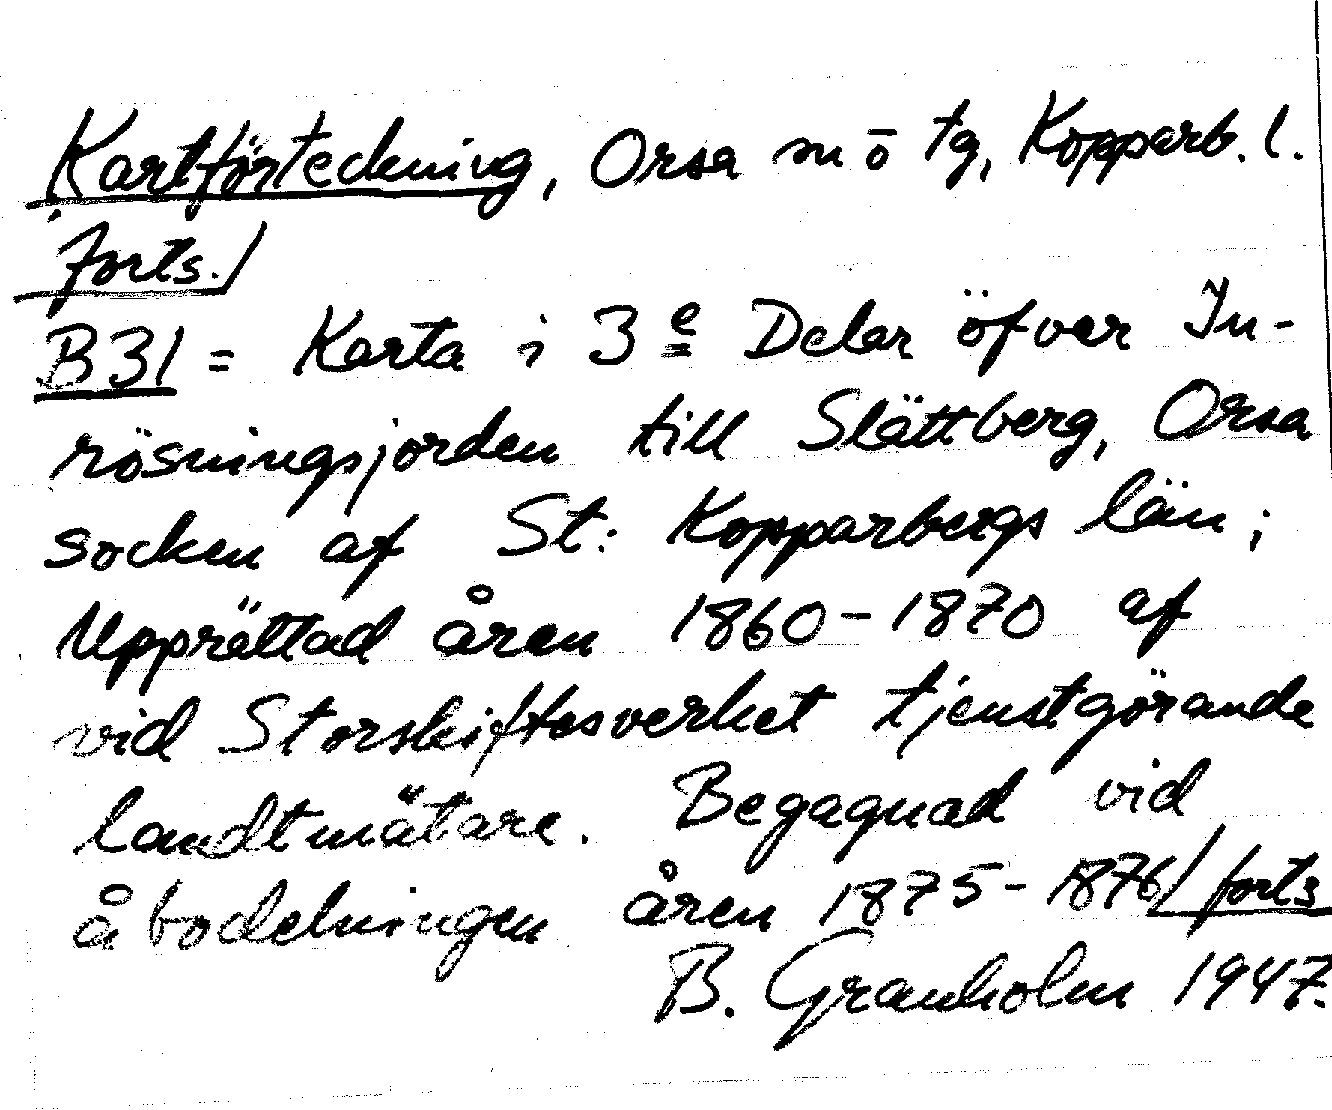 Kartförteckning, Orsa m ō tg, Kopparb. l.
forts./
B31 = Karta i 3e Delar öfver In-
rösningsjorden till Slättberg, Orsa
socken af St: Kopparbergs län;
Upprättad åren 1860-1870 af
vid Storskiftesverket tjenstgörande
landtmätare. Begagnad vid
åbodelningen åren 1875-1876/ forts
B. Granholm 1947.